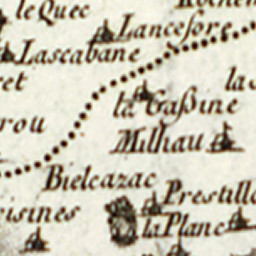 le Quec
Lancefore
Lascabane
et
la Gaßine
rou
Milhau
Bielcazac
Prestill
isines
la Planc